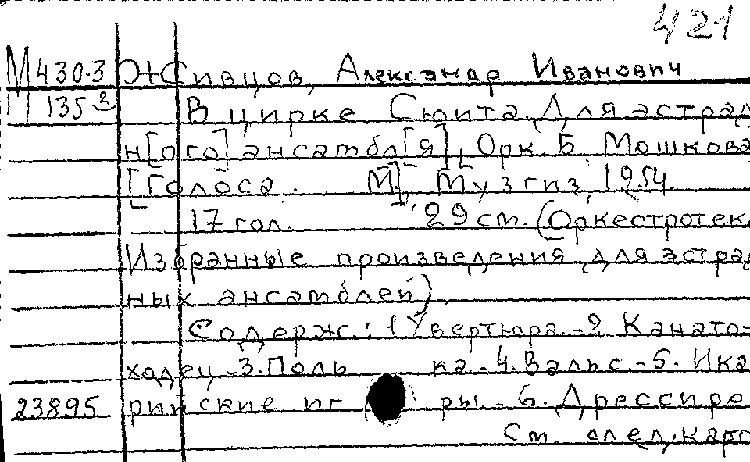 421
М430.3 Живцов, Александр Иванович
М 135 3 В цирке Сюита для эстрад
н[ого] ансамбл[я], Орк. Б. Мошкова
[Голоса. М], Музгиз, 1954.
17 гол. 29 см. (Оркестротека
Избранные произведения для эстрад
ных ансамблей)
Содерж.: 1 Увертюра.-2 Канато-
ходец-3.Поль ка.-4.Вальс-5. Ика
23895 рийские иг ры.-6. Дрессиро
См. след. карт